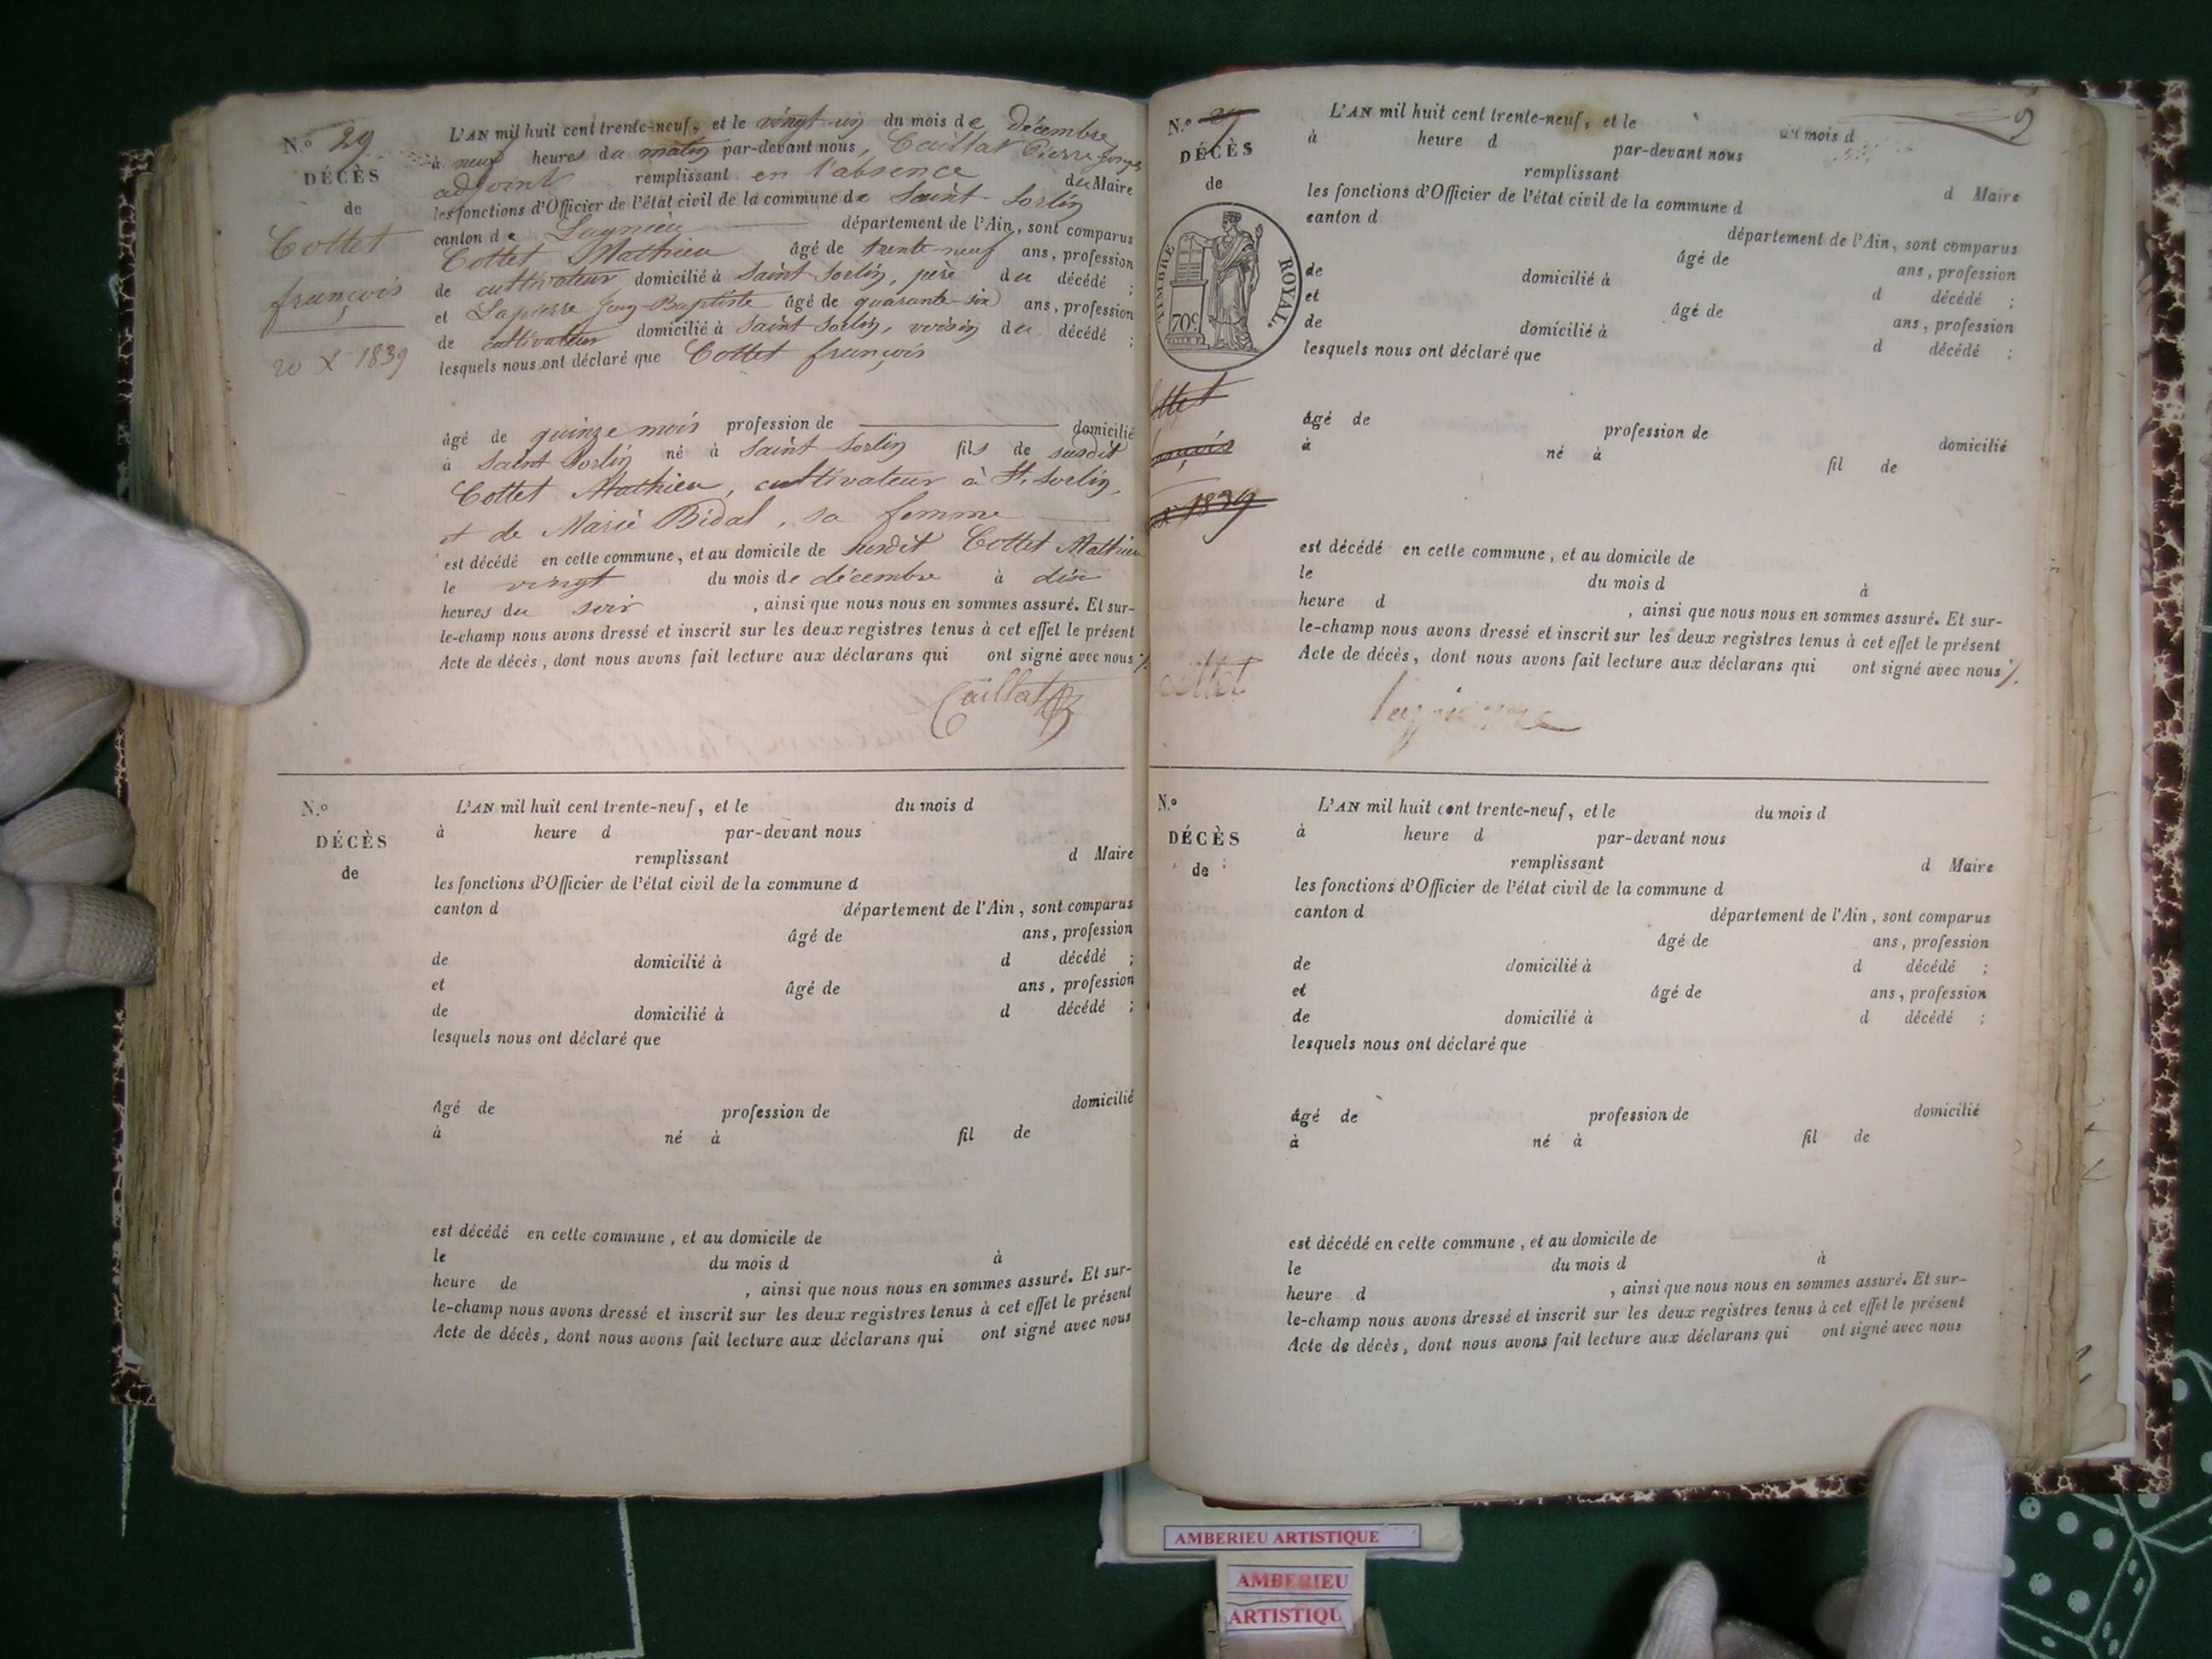 N.o 29
DÉCÈS
de
Cottet
françois
20 X 1839
L'AN mil huit cent trente-neuf, et le vingt-un du mois de décembre
à neuf heures du matin par-devant nous, Caillat Pierre
adjoint remplissant en l'absence du Maire
les fonctions d'Officier de l'état civil de la commune de Saint Sorlin
canton de Lagnieu département de l'Ain, sont comparus
Cottet Mathieu âgé de trente-neuf ans, profession
de cultivateur domicilié à Saint Sorlin, père du décédé ;
et Lapierre Jean-Baptiste âgé de quarante-six ans, profession
de cultivateur domicilié à Saint Sorlin, voisin du décédé ;
lesquels nous ont déclaré que Cottet françois
âgé de quinze mois profession de domicilié
à Saint Sorlin né à Saint Sorlin fils de susdit
Cottet Mathieu, cultivateur à St. Sorlin,
et de Marie Bidal, sa femme
est décédé en cette commune, et au domicile de susdit Cottet Mathieu
le vingt du mois de décembre à dix
heures du soir, ainsi que nous nous en sommes assuré. Et sur-
le-champ nous avons dressé et inscrit sur les deux registres tenus à cet effet le présent
Acte de décès, dont nous avons fait lecture aux déclarans qui ont signé avec nous ./.
Caillat
N.o
DÉCÈS
de
L'AN mil huit cent trente-neuf, et le du mois d
à heure d par-devant nous
remplissant d Maire
les fonctions d'Officier de l'état civil de la commune d
canton d département de l'Ain, sont comparus
âgé de ans, profession
de domicilié à d décédé ;
et âgé de ans, profession
de domicilié à d décédé ;
lesquels nous ont déclaré que
âgé de profession de domicilié
à né à fil de
est décédé en cette commune, et au domicile de
le du mois d à
heure de , ainsi que nous nous en sommes assuré. Et sur-
le-champ nous avons dressé et inscrit sur les deux registres tenus à cet effet le présent
Acte de décès, dont nous avons fait lecture aux déclarans qui ont signé avec nous
9
N.o
DÉCÈS
de
TIMBRE ROYAL.
70c
ttet
ançois
X 1839
L'AN mil huit cent trente-neuf, et le du mois d
à heure d par-devant nous
remplissant d Maire
les fonctions d'Officier de l'état civil de la commune d
canton d département de l'Ain, sont comparus
âgé de ans, profession
de domicilié à d décédé ;
et âgé de ans, profession
de domicilié à d décédé ;
lesquels nous ont déclaré que
âgé de profession de domicilié
à né à fil de
est décédé en cette commune, et au domicile de
le du mois d à
heure d , ainsi que nous nous en sommes assuré. Et sur-
le-champ nous avons dressé et inscrit sur les deux registres tenus à cet effet le présent
Acte de décès, dont nous avons fait lecture aux déclarans qui ont signé avec nous ./.
cottet lapierre
N.o
DÉCÈS
de
L'AN mil huit cent trente-neuf, et le du mois d
à heure d par-devant nous
remplissant d Maire
les fonctions d'Officier de l'état civil de la commune d
canton d département de l'Ain, sont comparus
âgé de ans, profession
de domicilié à d décédé ;
et âgé de ans, profession
de domicilié à d décédé ;
lesquels nous ont déclaré que
âgé de profession de domicilié
à né à fil de
est décédé en cette commune, et au domicile de
le du mois d à
heure d , ainsi que nous nous en sommes assuré. Et sur-
le-champ nous avons dressé et inscrit sur les deux registres tenus à cet effet le présent
Acte de décès, dont nous avons fait lecture aux déclarans qui ont signé avec nous
AMBERIEU ARTISTIQUE
AMBERIEU
ARTISTIQU